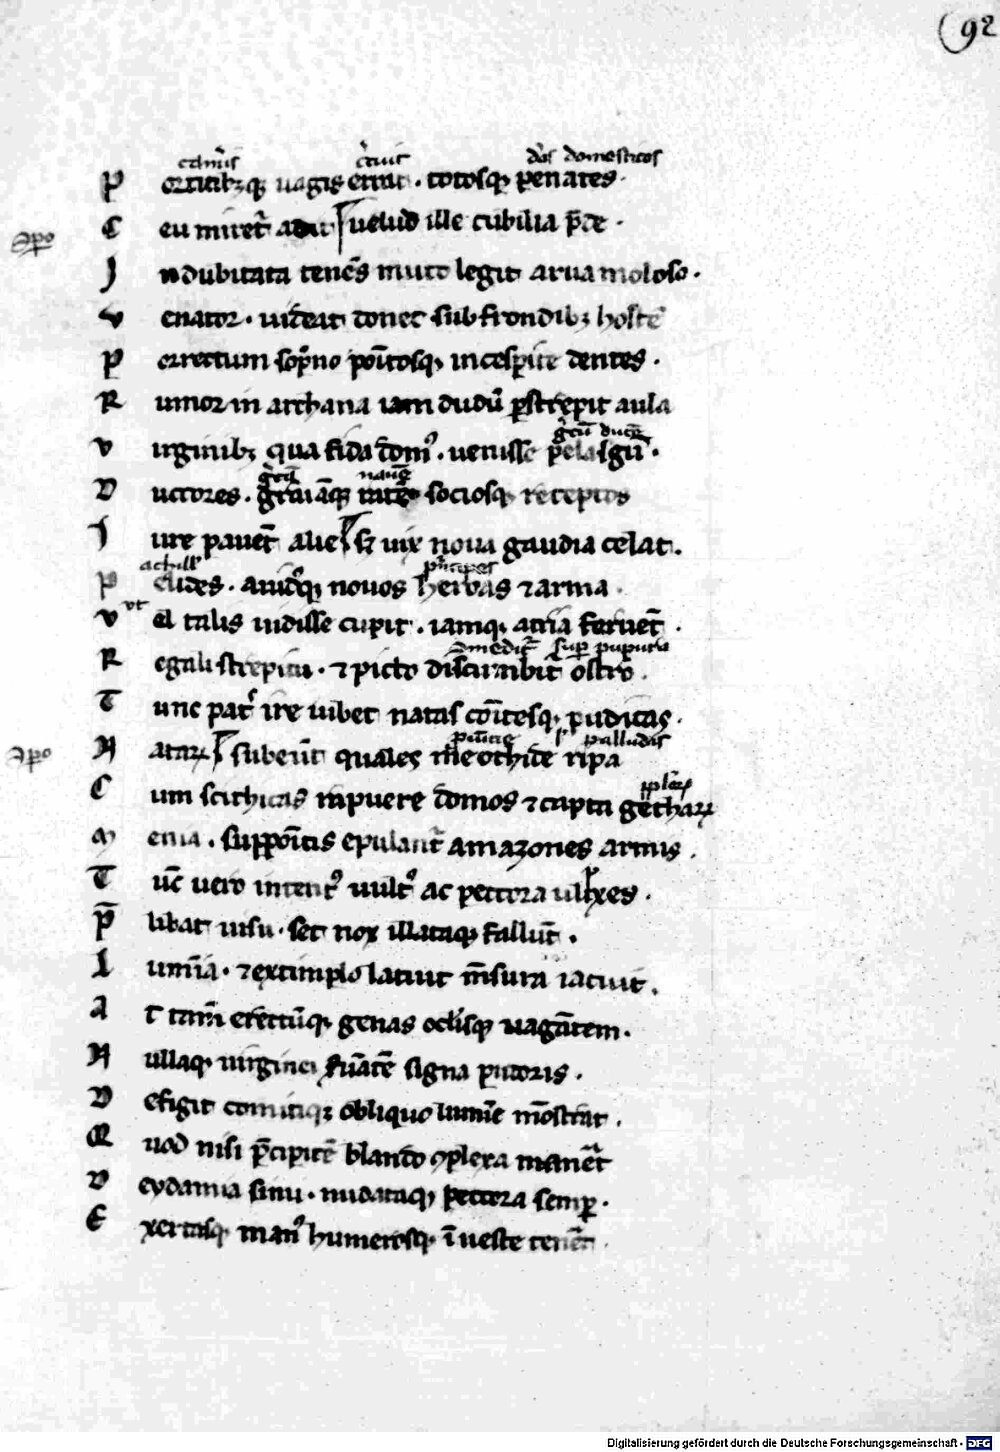 (92
cameris circuit deos domesticos
P orticibꝫqꝫ uagis errat · totosqꝫ penates ·
C eu miret᷑ adit uelud ille cubilia p̄de ·
Apo
I ndubitata tenēs muto legit arua moloso ·
V enator · uideat donec sub frondibꝫ hostē
P orrectum sop̄no po͞itosqꝫ in cespite dentes ·
R umor in archana iam dudū ꝑstrepit aula
grecū ducē
V irginibꝫ qua fida domꝰ · uenisse pelasgū ·
grecā nauē
D uctores · graiāqꝫ ratē sociosqꝫ receptos
I ure pauēt alie sꝫ uix noua gaudia celat ·
achill' p̄ncipes
P elides · auidꝰqꝫ nouos herbas ⁊ arma ·
V ut el talis uidisse cupit · iamqꝫ atria feruēt ·
sup purpura
R egali strepitu · ⁊ picto discumbit᷑ ostro ·
T unc pat᷑ ire iubet natas cōitesqꝫ pudicas ·
palludis
N ataꝝ subeūt quales meothide ripa
Apo
C um scithicas rapuere domos ⁊ capta gethaꝝ
M enia · suppo͞itis epulant᷑ amazones armis ·
T ūc uero intentꝰ uultꝰ ac pectora ulixes ·
P̄ libat uisu · set nox illataqꝫ fallūt ·
L umīa · ⁊ extimplo latuit mēsura iacuit ·
A t tam̄ erectūqꝫ genas oclīsqꝫ uagātem ·
N ullaqꝫ uirginei ẜuātē signa pudoris ·
D efigit comitiqꝫ obliquo lumīe mōstrat ·
Q uod nisi p̄cipitē blando ꝯplexa manēt
D eydamia sinu · nudataqꝫ pectora semꝑ ·
E xertasqꝫ manꝰ humerosqꝫ ī ueste tenēt ·
Digitalisierung gefördert durch die Deutsche Forschungsgemeinschaft - DFG